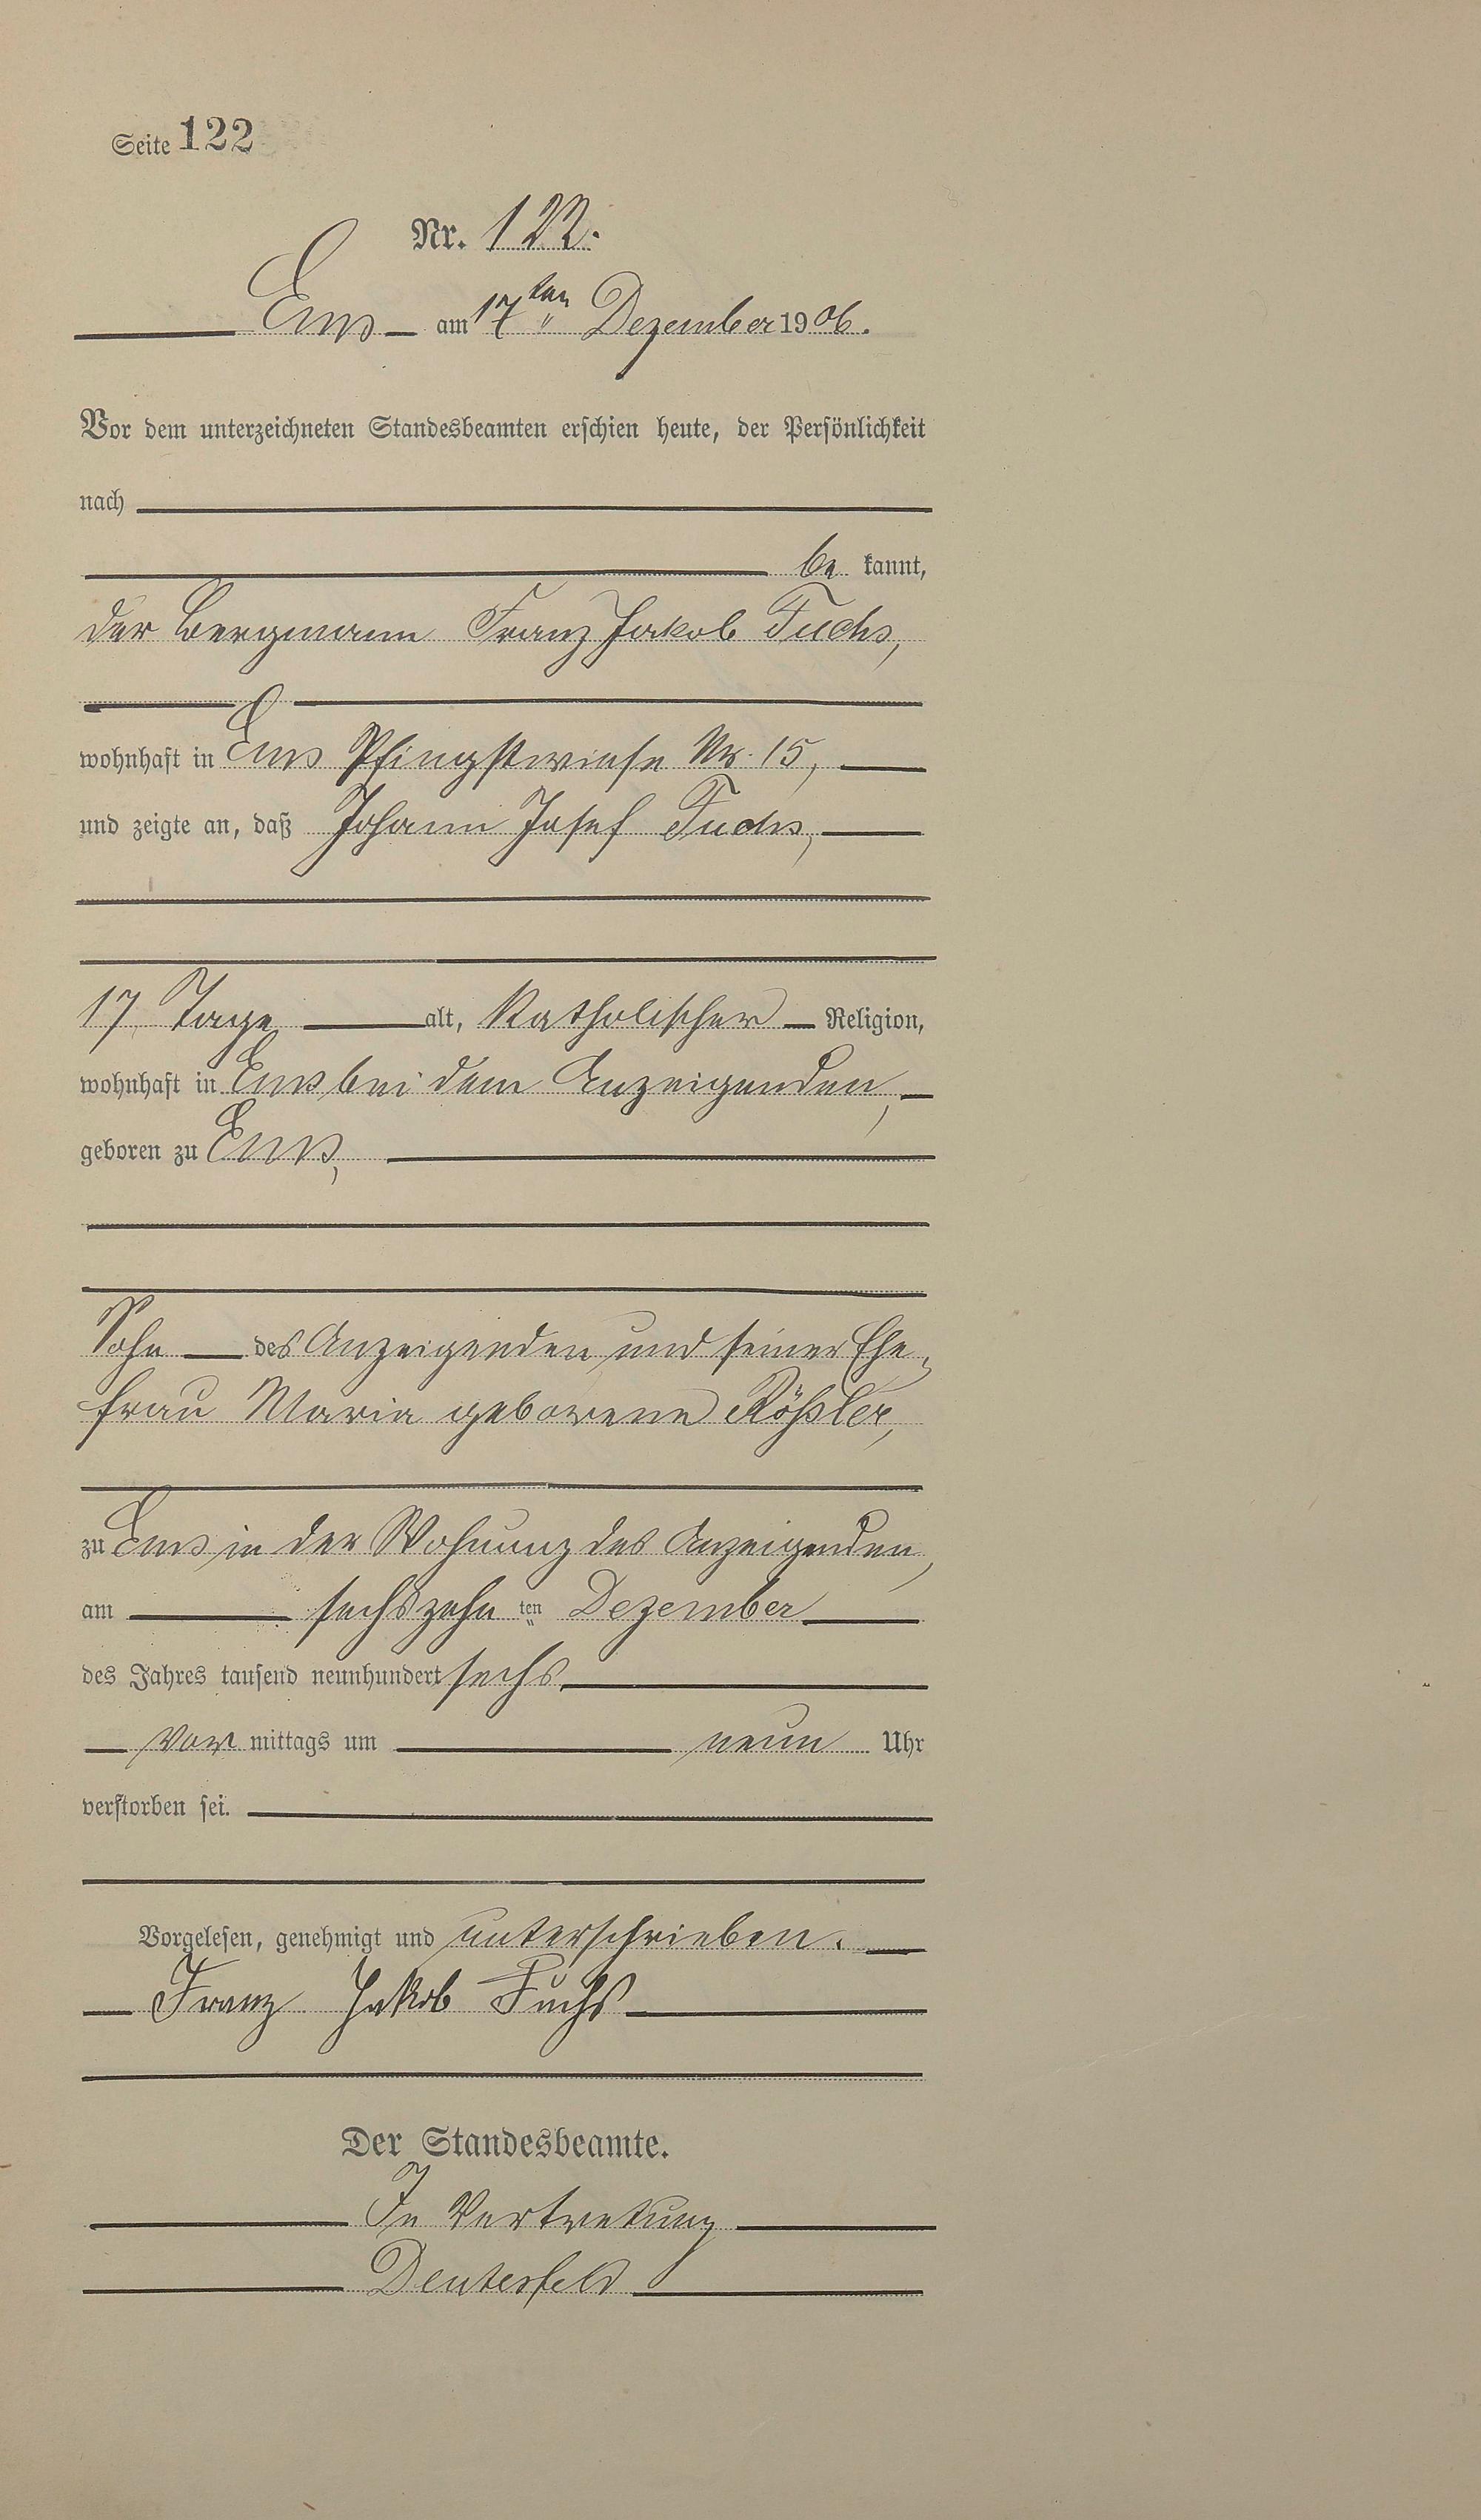 Seite 122
Nr. 122.
Ems am 17ten Dezember 1906.
Vor dem unterzeichneten Standesbeamten erschien heute, der Persönlichkeit
nach
be kannt,
der Bergmann Franz Jakob Fuchs,
wohnhaft in Ems Pfingstwiese Nr. 15,
und zeigte an, daß Johann Josef Fuchs,
17 Tage alt, katholischer Religion,
wohnhaft in Ems bei dem Anzeigenden,
geboren zu Ems,
Sohn des Anzeigenden und seiner Ehe-
frau Maria geborene Rößler,
zu Ems in der Wohnung des Anzeigenden,
am sechszehn ten Dezember
des Jahres tausend neunhundert sechs
Vor mittags um neun Uhr
verstorben sei.
Vorgelesen, genehmigt und unterschrieben.
Franz Jakob Fuchs
Der Standesbeamte.
In Vertretung
Deutesfeld